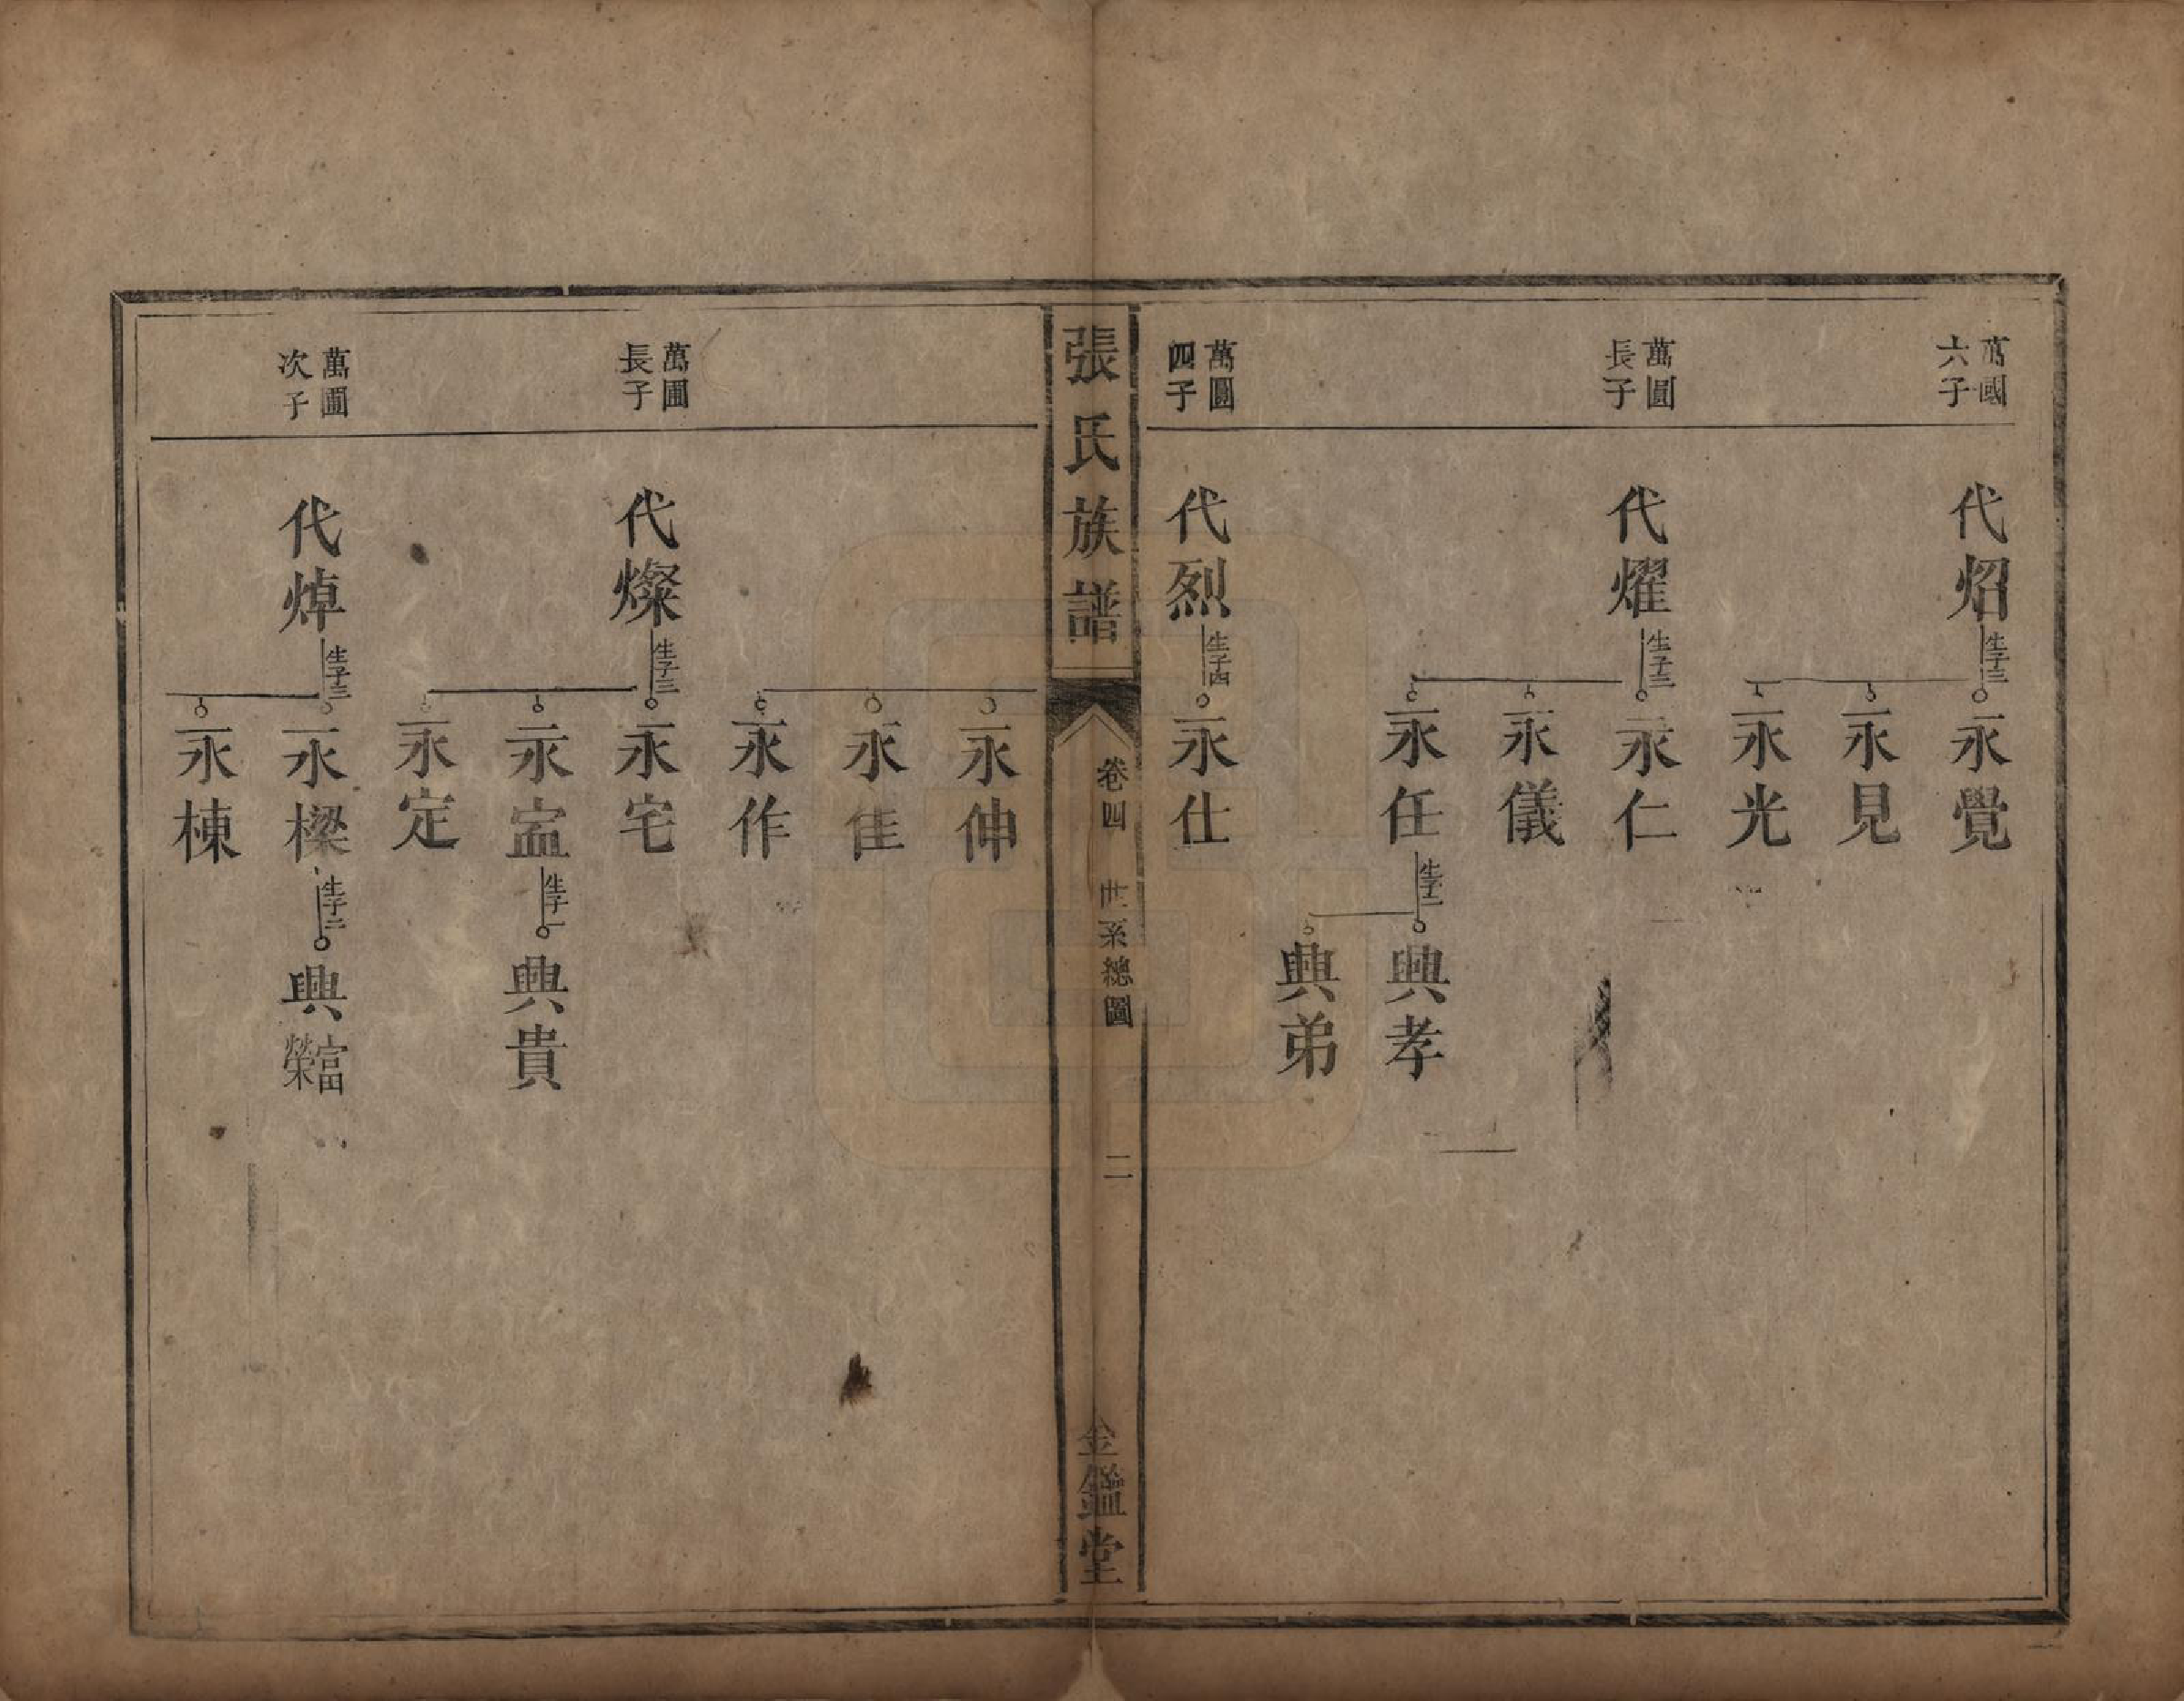 萬國
六子
代炤
生子三
永覺
永見
永光
萬圓
長子
代燿
生子三
永仁
永儀
永任
生子二
興孝
興弟
萬圓
四子
代烈
生子四
永仕
張氏族譜
卷四
世系總圖
二
金鑑堂
永伸
永佳
永作
萬圃
長子
代燦
生子三
永宅
永寍
生子一
興貴
永定
萬圃
次子
代焯
生子三
永樑
生子二
興富
榮
永棟